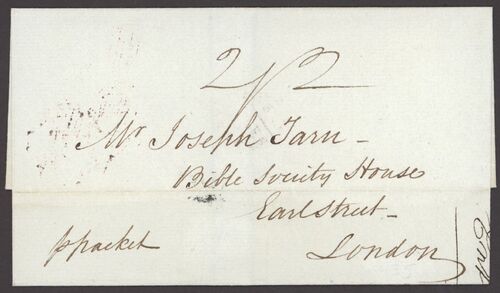 2/2
Mr Joseph Tarn -
Bible Society House
Earl Street -
London
p packet